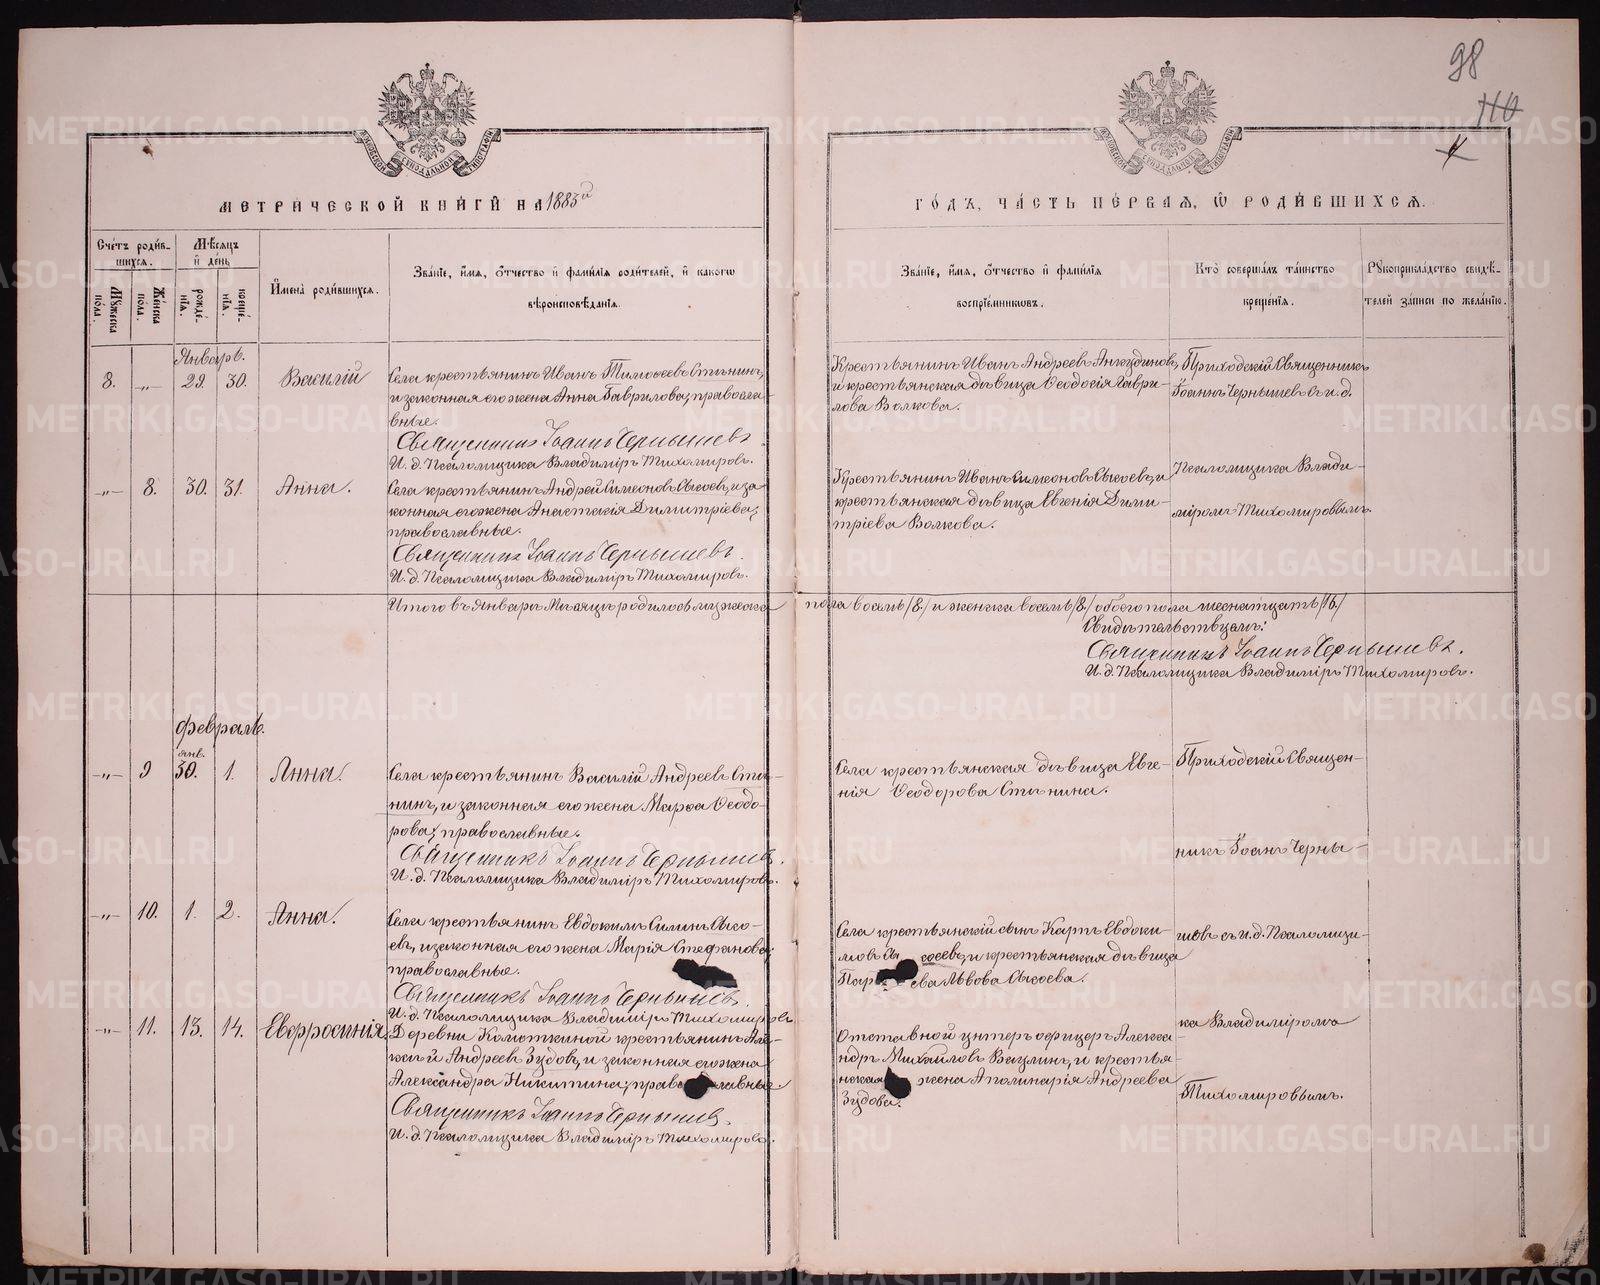 98
110
МЕТРИЧЕСКОЙ КНИГИ НА 1883й
ГОДЪ, ЧАСТЬ ПЕРВАЯ, Ѡ РОДИВШИХСЯ.
Счетъ родив-
шихся.
Мужеска пола.
Женска пола.
Мѣсяцъ и день
рожде-
нія.
креще-
нія.
Имена родившихся.
Званіе, имя, отчество и фамилія родителей, и какогѡ
вѣроисповѣданія.
Званіе, имя, отчество и фамилія
воспріемниковъ.
Кто совершалъ таинство
крещенія.
Рукоприкладство свидѣ-
телей записи по желанію.
Январь.
8. -"- 29. 30. Василій
Села крестьянинъ Иванъ Тимоѳеевъ Стѣнинъ,
и законная его жена Анна Гаврилова, правосла-
вные.
Священникъ Іоаннъ Чернышевъ.
И. д. Псаломщика Владиміръ Тихомировъ.
Крестьянинъ Иванъ Андреевъ Анкудиновъ,
и крестьянская дѣвица Ѳеодосія Гаври-
лова Волкова.
Приходскій Священникъ
Іоаннъ Чернышевъ съ и. д.
-"- 8. 30. 31. Анна.
Села крестьянинъ Андрей Симеоновъ Сысоевъ, и за-
конная его жена Анастасія Димитріева,
православные.
Священникъ Іоаннъ Чернышевъ.
И. д. Псаломщика Владиміръ Тихомировъ.
Крестьянинъ Иванъ Симеоновъ Сысоевъ, и
крестьянская дѣвица Евгенія Дими-
тріева Волкова.
Псаломщика Влади-
міромъ Тихомировымъ.
Итого въ Январѣ Мѣсяцѣ родилось мужеска пола восемь /8./ и женска восемь /8./ обоего пола шеснатцать /16./
Свидѣтельствуемъ:
Священникъ Іоаннъ Чернышевъ.
И. д. Псаломщика Владиміръ Тихомировъ.
Февраль.
янв.
-"- 9 30. 1. Анна.
Села крестьянинъ Василій Андреевъ Стѣ-
нинъ, и законная его жена Марѳа Ѳеодо-
рова, православные.
Священникъ Іоаннъ Чернышевъ.
И. д. Псаломщика Владиміръ Тихомировъ.
Села крестьянская дѣвица Евге-
нія Ѳеодорова Стѣнина.
Приходскій Священ-
никъ Іоаннъ Черны-
-"- 10. 1. 2. Анна.
Села крестьянинъ Евдокимъ Силинъ Сысо-
евъ, и законная его жена Марія Стефанова,
православные.
Священникъ Іоаннъ Чернышевъ.
И. д. Псаломщика Владиміръ Тихомировъ
Села крестьянскій сынъ Карпъ Евдоки-
мовъ Сысоевъ, и крестьянская дѣвица
Пар ева Львова Сысоева.
шевъ съ и. д. Псаломщи-
-"- 11. 13. 14. Евфросинія.
Деревни Колоткиной крестьянинъ Але-
ксѣй Андреевъ Зудовъ, и законная его жена
Александра Никитина, православные.
Священникъ Іоаннъ Чернышевъ.
И. д. Псаломщика Владиміръ Тихомировъ.
Отставной унтеръ офицеръ Алекса-
ндръ Михайловъ Ваулинъ, и крестья-
нская жена Аполинарія Андреева
Зудова.
ка Владиміромъ
Тихомировымъ.